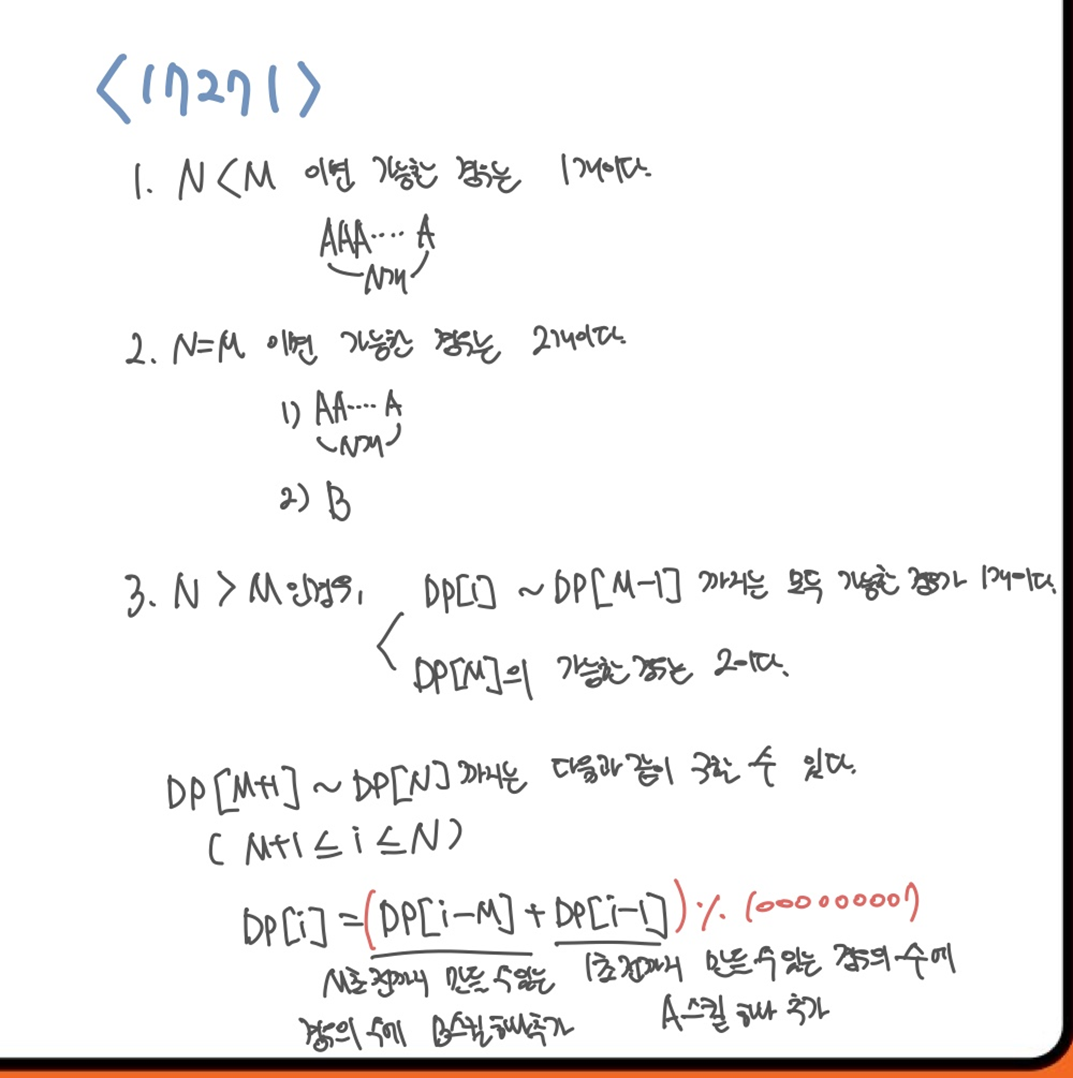 <17271>
1. N<M 이면 가능한 경우는 1개이다.
AAA···· A
N개
2. N=M 이면 가능한 경우는 2개이다.
1) AA···· A
N개
2) B
3. N > M 인경우, DP[i] ~ DP[M-1] 까지는 모두 가능한 경우가 1개이다.
DP[M]의 가능한 경우는 2이다.
DP[M+1] ~ DP[N] 까지는 다음과 같이 구할 수 있다.
( M+1 ≤ i ≤ N )
DP[i] = (DP[i-M] + DP[i-1]) % 1000000007
M초 전까지 만들 수 있는 1초 전까지 만들 수 있는 경우의 수에
경우의 수에 B스킬 하나 추가 A스킬 하나 추가